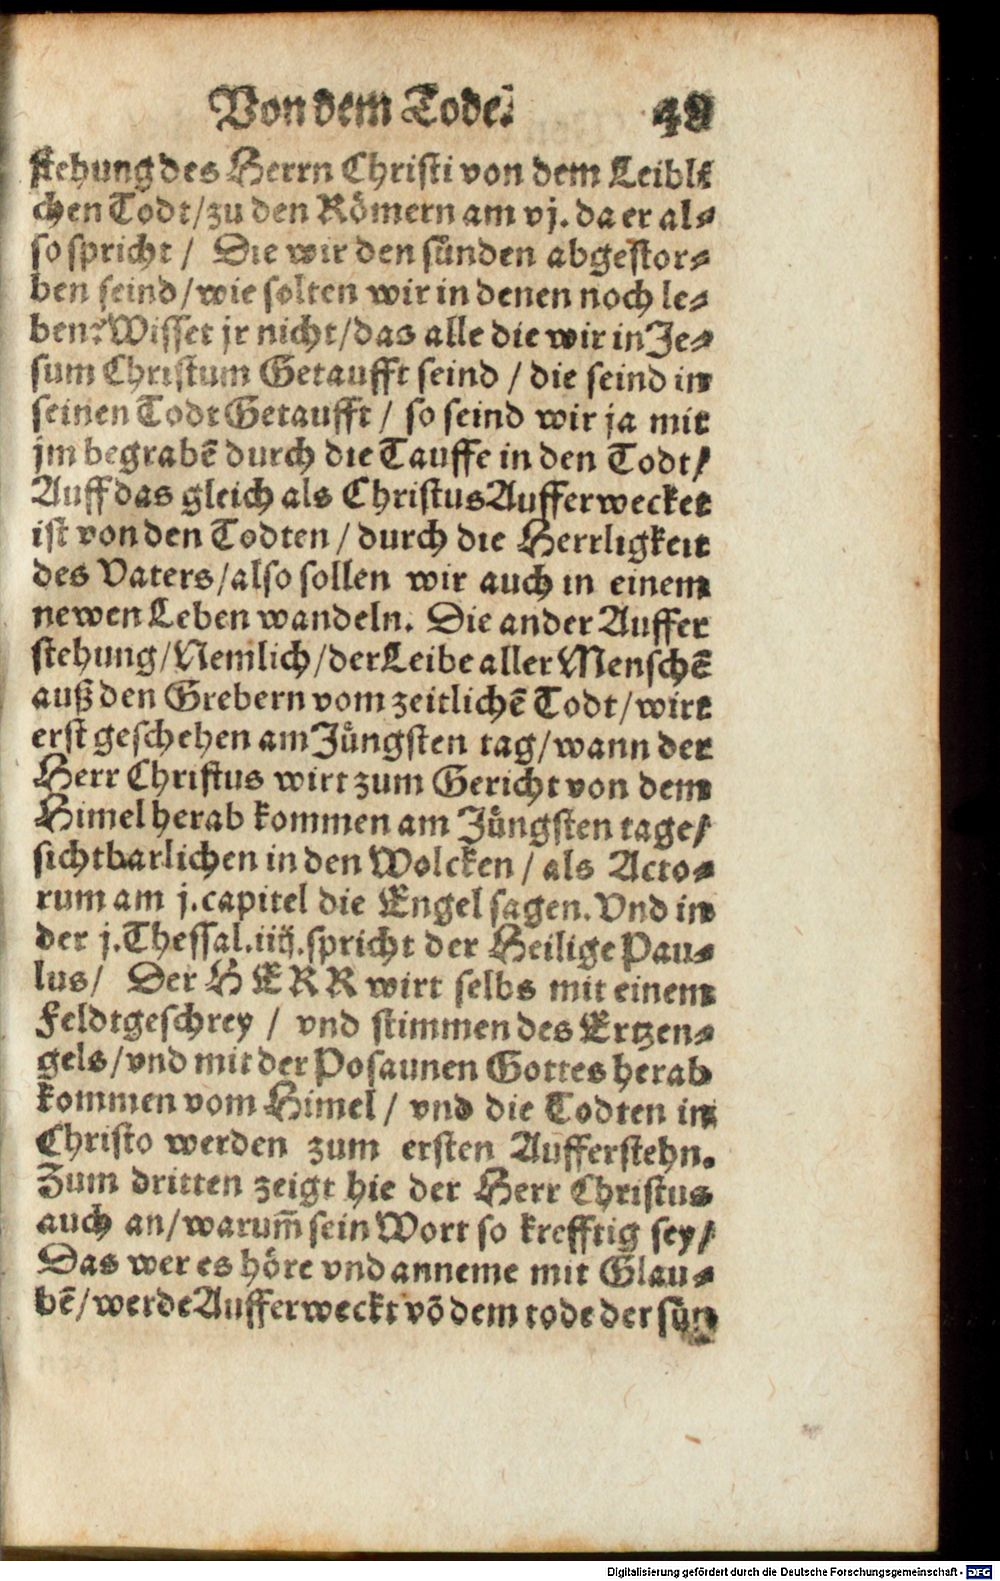 Von dem Tode. 48
stehung des Herrn Christi von dem Leibli
chen Todt/zu den Römern am vj. da er al⸗
so spricht / Die wir den sünden abgestor⸗
ben seind/wie solten wir in denen noch le⸗
ben? Wisset jr nicht/das alle die wir in Je⸗
sum Christum Getaufft seind / die seind in
seinen Todt Getaufft / so seind wir ja mit
jm begrabē durch die Tauffe in den Todt/
Auff das gleich als Christus Aufferwecket
ist von den Todten / durch die Herrligkeit
des Vaters/also sollen wir auch in einem
newen Leben wandeln. Die ander Auffer
stehung/Nemlich/der Leibe aller Menschē
auß den Grebern vom zeitlichē Todt/wirt
erst geschehen am Jüngsten tag/wann der
Herr Christus wirt zum Gericht von dem
Himel herab kommen am Jüngsten tage/
sichtbarlichen in den Wolcken / als Acto⸗
rum am j. capitel die Engel sagen. Vnd in
der j. Thessal. iiij. spricht der Heilige Pau⸗
lus/ Der HERR wirt selbs mit einem
Feldtgeschrey / vnd stimmen des Ertzen⸗
gels/vnd mit der Posaunen Gottes herab
kommen vom Himel / vnd die Todten in
Christo werden zum ersten Aufferstehn.
Zum dritten zeigt hie der Herr Christus
auch an/warum̄ sein Wort so krefftig sey/
Das wer es höre vnd anneme mit Glau⸗
bē/werde Aufferweckt vō dem tode der sün
Digitalisierung gefördert durch die Deutsche Forschungsgemeinschaft - DFG